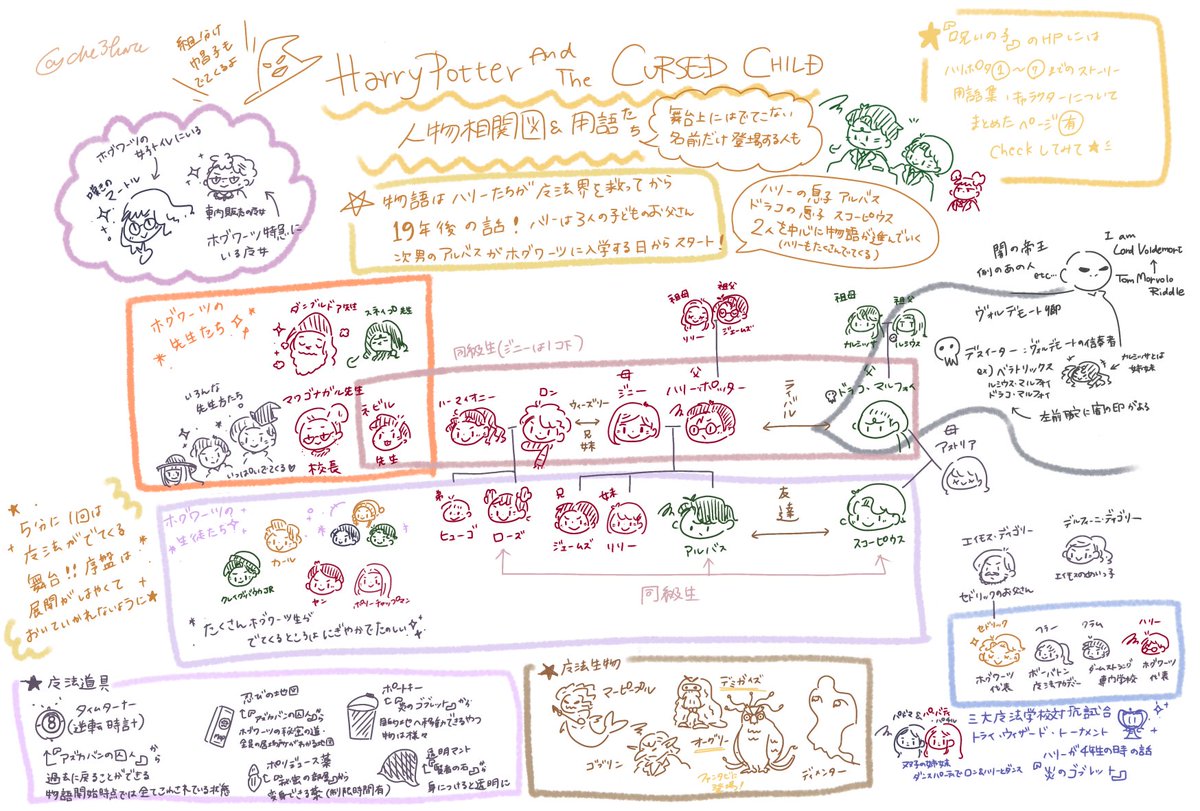 @che3hare
組分け
帽子も
でてくるよ
Harry Potter And The CURSED CHILD
人物相関図&用語たち
舞台上にはでてこない
名前だけ登場する人も
★『呪いの子』のHPには
ハリポタ①〜⑦までのストーリー
用語集、キャラクターについて
まとめたページ有
Checkしてみて★
ホグワーツの
女子トイレにいる
嘆きの
マートル
車内販売の魔女
ホグワーツ特急に
いる魔女
☆物語はハリーたちが魔法界を救ってから
19年後の話!ハリーは3人の子どものお父さん
次男のアルバスがホグワーツに入学する日からスタート!
ハリーの息子 アルバス
ドラコの息子 スコーピウス
2人を中心に物語が進んでいく
(ハリーもたくさんでてくる)
闇の帝王
例のあの人
etc…
I am
Lord Voldemort
↑
Tom Marvolo
Riddle
ヴォルデモート卿
デスイーター:ヴォルデモートの信奉者
ex) ベラトリックス
ルシウス・マルフォイ
ドラコ・マルフォイ
ナルシッサとは
姉妹
左前腕に闇の印がある
ホグワーツの
先生たち
ダンブルドア先生
スネイプ先生
いろんな
先生方たち
いっぱいでてくる
マクゴナガル先生
校長
ネビル
先生
同級生(ジニーは1コ下)
ハーマイオニー
ロン
ウィーズリー
兄妹
母
ジニー
父
ハリー・ポッター
祖母
リリー
祖父
ジェームズ
ライバル
祖母
ナルシッサ
祖父
ルシウス
父
ドラコ・マルフォイ
母
アストリア
5分に1回は
魔法がでてくる
舞台!!序盤は
展開がはやくて
おいていかれないように★
ホグワーツの
生徒たち
カール
クレイグ・バウカJR
ヤン
ポリー・チャップマン
たくさんホグワーツ生が
でてくるところはにぎやかでたのしい
弟
ヒューゴ
ローズ
兄
ジェームズ
妹
リリー
アルバス
友達
スコーピウス
同級生
エイモス・ディゴリー
セドリックのお父さん
デルフィーニ・ディゴリー
エイモスのめいっ子
セドリック
ホグワーツ
代表
フラー
ボーバトン
魔法アカデミー
クラム
ダームストラング
専門学校
ハリー
ホグワーツ
代表
三大魔法学校対抗試合
トライ・ウィザード・トーナメント
ハリーが4年生の時の話
『炎のゴブレット』
パドマ&パーバティ
パチル
双子の姉妹
ダンスパーティでロン&ハリーとダンス
★魔法道具
タイムターナー
(逆転時計)
『アズカバンの囚人』から
過去に戻ることができる
物語開始時点では全てこわされている状態
忍びの地図
『アズカバンの囚人』から
ホグワーツの秘密の道・
全員の居場所がわかる地図
ポリジュース薬
『秘密の部屋』から
変身できる薬(制限時間有)
ポートキー
『炎のゴブレット』から
目的地へ移動できるやつ
物は様々
透明マント
『賢者の石』から
身につけると透明に
★魔法生物
マーピープル
ゴブリン
デミガイズ
オーグリー
ファンタビに
登場!
ディメンター